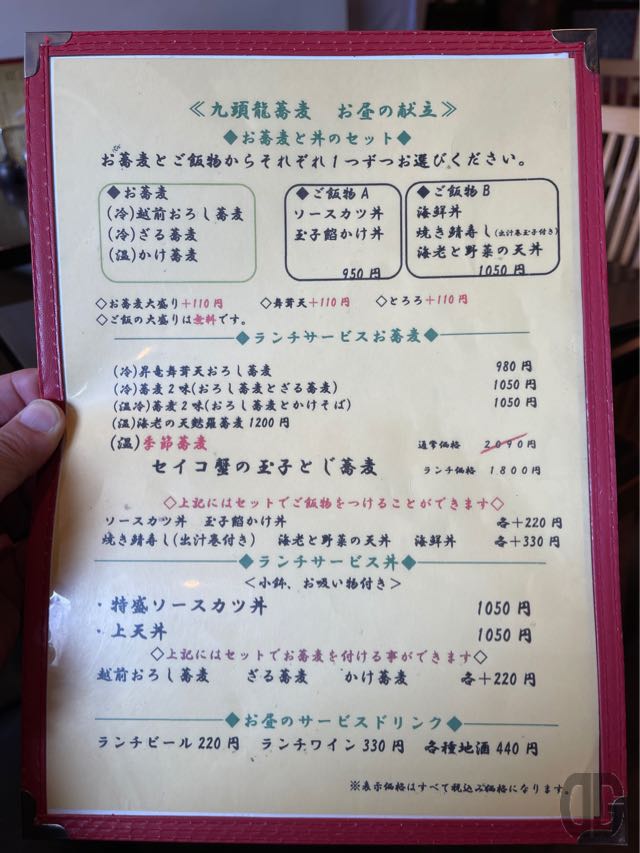 ≪九頭龍蕎麦　お昼の献立≫
◆お蕎麦と丼のセット◆
お蕎麦とご飯物からそれぞれ１つずつお選びください。
◆お蕎麦
(冷)越前おろし蕎麦
(冷)ざる蕎麦
(温)かけ蕎麦
◆ご飯物A
ソースカツ丼
玉子餡かけ丼
950円
◆ご飯物B
海鮮丼
焼き鯖寿し(出汁巻玉子付き)
海老と野菜の天丼
1050円
◇お蕎麦大盛り＋110円　◇舞茸天＋110円　◇とろろ＋110円
◇ご飯の大盛りは無料です。
◆ランチサービスお蕎麦◆
(冷)昇竜舞茸天おろし蕎麦　980円
(冷)蕎麦２味(おろし蕎麦とざる蕎麦)　1050円
(温冷)蕎麦２味(おろし蕎麦とかけそば)　1050円
(温)海老の天麩羅蕎麦 1200円
(温)季節蕎麦　通常価格　2090円
セイコ蟹の玉子とじ蕎麦　ランチ価格　1800円
◇上記にはセットでご飯物をつけることができます◇
ソースカツ丼　玉子餡かけ丼　各＋220円
焼き鯖寿し(出汁巻付き)　海老と野菜の天丼　海鮮丼　各＋330円
◆ランチサービス丼◆
＜小鉢、お吸い物付き＞
・特盛ソースカツ丼　1050円
・上天丼　1050円
◇上記にはセットでお蕎麦を付ける事ができます◇
越前おろし蕎麦　ざる蕎麦　かけ蕎麦　各＋220円
◆お昼のサービスドリンク◆
ランチビール220円　ランチワイン330円　各種地酒440円
※表示価格はすべて税込み価格になります。